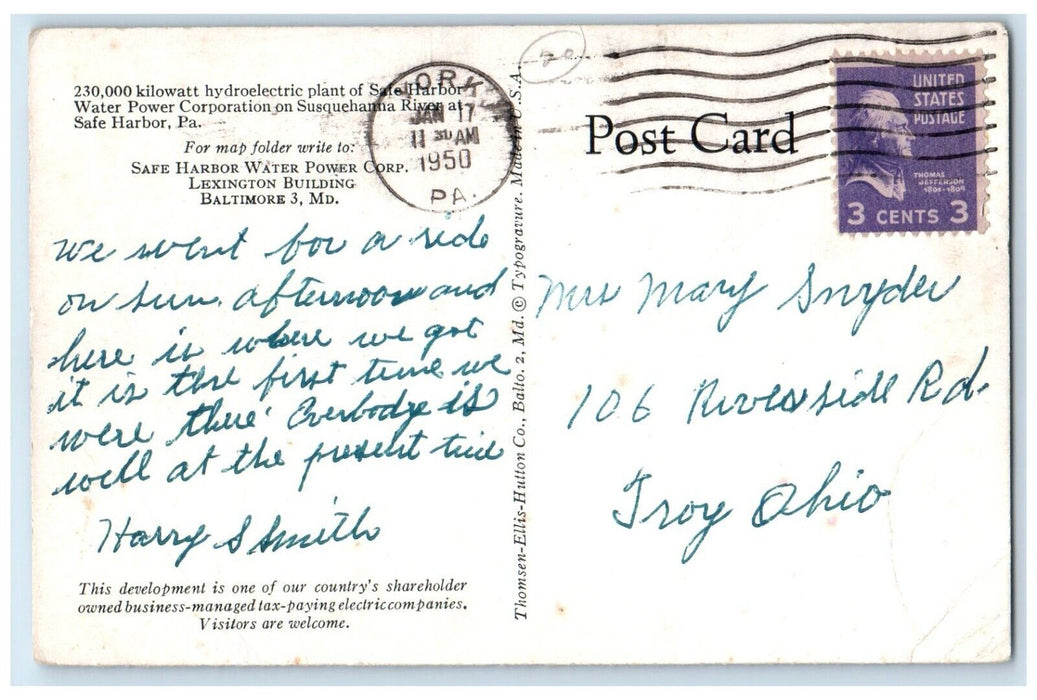 230,000 kilowatt hydroelectric plant of Safe Harbor
Water Power Corporation on Susquehanna River at
Safe Harbor, Pa.
For map folder write to:
SAFE HARBOR WATER POWER CORP.
LEXINGTON BUILDING
BALTIMORE 3, MD.
We went for a ride
on Sun. afternoon and
here is where we got
it is the first time we
were there Everbodye is
well at the present time
Harry S Smith
This development is one of our country's shareholder
owned business-managed tax-paying electric companies.
Visitors are welcome.
YORK
JAN 17
11 30 AM
1950
PA.
20
Thomsen-Ellis-Hutton Co., Balto. 2, Md. © Typogravure. Made in U.S.A.
Post Card
UNITED
STATES
POSTAGE
THOMAS
JEFFERSON
1801-1809
3 CENTS 3
Mrs Mary Snyder
106 Riverside Rd.
Troy Ohio